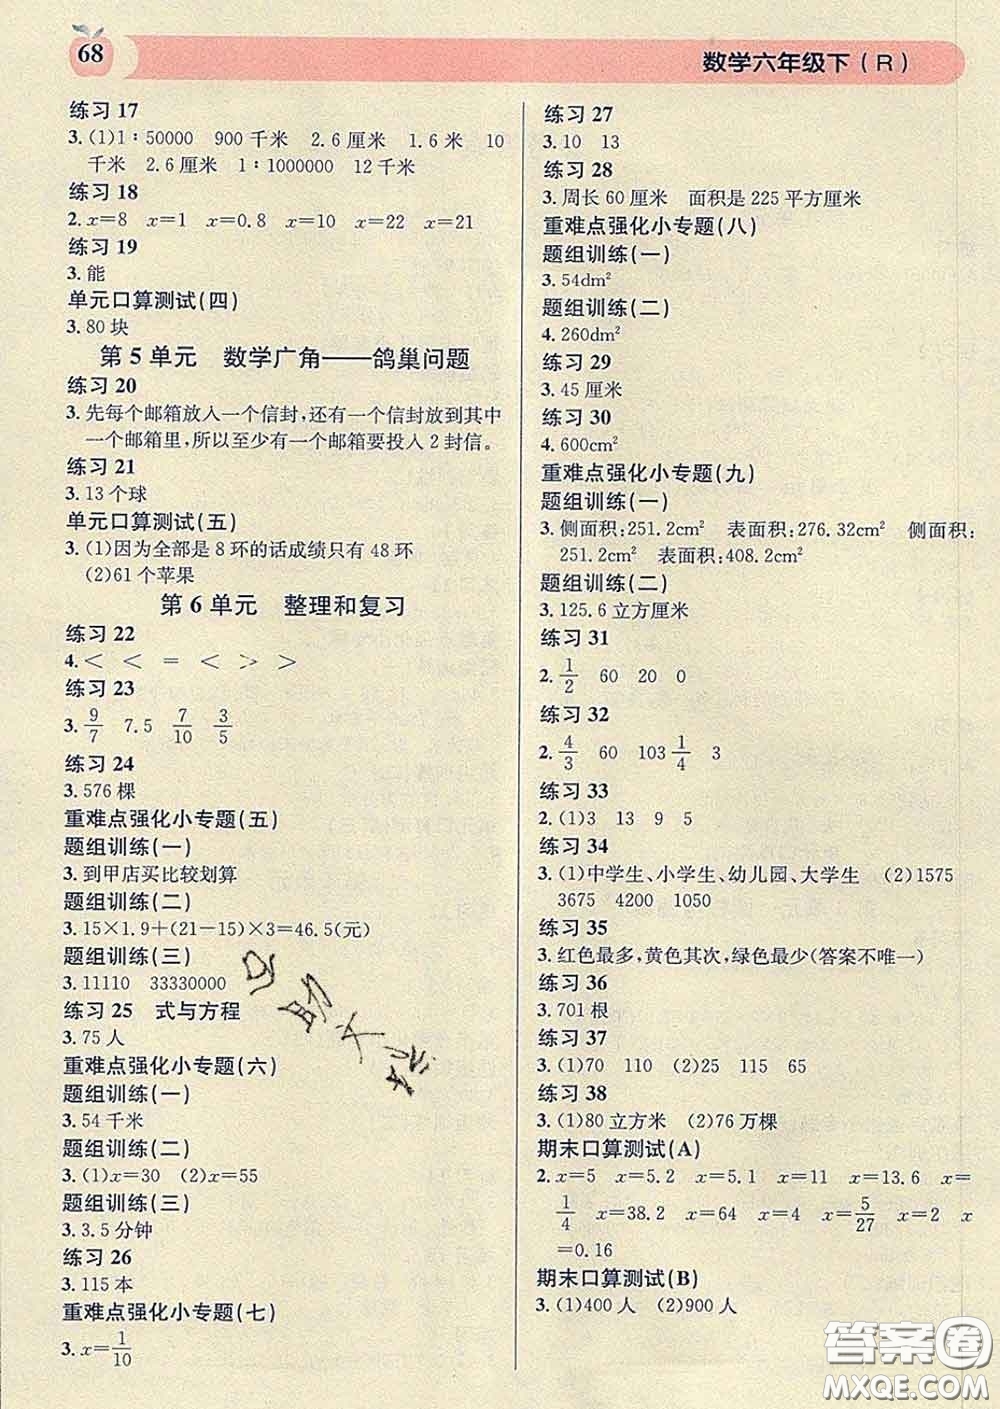 68
数学六年级下(R)
练习 17
3. (1)1∶50000 900 千米 2.6 厘米 1.6 米 10
千米 2.6 厘米 1∶1000000 12 千米
练习 18
2. x=8 x=1 x=0.8 x=10 x=22 x=21
练习 19
3. 能
单元口算测试(四)
3. 80 块
第 5 单元 数学广角——鸽巢问题
练习 20
3. 先每个邮箱放入一个信封,还有一个信封放到其中
一个邮箱里,所以至少有一个邮箱要投入 2 封信。
练习 21
3. 13 个球
单元口算测试(五)
3. (1)因为全部是 8 环的话成绩只有 48 环
(2)61 个苹果
第 6 单元 整理和复习
练习 22
4. < < = < > >
练习 23
3. 9/7 7.5 7/10 3/5
练习 24
3. 576 棵
重难点强化小专题(五)
题组训练(一)
3. 到甲店买比较划算
题组训练(二)
3. 15×1.9+(21-15)×3=46.5(元)
题组训练(三)
3. 11110 33330000
练习 25 式与方程
3. 75 人
重难点强化小专题(六)
题组训练(一)
3. 54 千米
题组训练(二)
3. (1)x=30 (2)x=55
题组训练(三)
3. 3.5 分钟
练习 26
3. 115 本
重难点强化小专题(七)
3. x=1/10
练习 27
3. 10 13
练习 28
3. 周长 60 厘米 面积是 225 平方厘米
重难点强化小专题(八)
题组训练(一)
3. 54dm²
题组训练(二)
4. 260dm²
练习 29
3. 45 厘米
练习 30
4. 600cm²
重难点强化小专题(九)
题组训练(一)
3. 侧面积:251.2cm² 表面积:276.32cm² 侧面积:
251.2cm² 表面积:408.2cm²
题组训练(二)
3. 125.6 立方厘米
练习 31
2. 1/2 60 20 0
练习 32
2. 4/3 60 103 1/4 3
练习 33
2. (1)3 13 9 5
练习 34
3. (1)中学生、小学生、幼儿园、大学生 (2)1575
3675 4200 1050
练习 35
3. 红色最多,黄色其次,绿色最少(答案不唯一)
练习 36
3. 701 根
练习 37
3. (1)70 110 (2)25 115 65
练习 38
3. (1)80 立方米 (2)76 万棵
期末口算测试(A)
2. x=5 x=2 x=5.1 x=11 x=13.6 x=
1/4 x=38.2 x=64 x=4 x=5/27 x=2 x
=0.16
期末口算测试(B)
3. (1)400 人 (2)900 人
答案圈
MXQE.COM